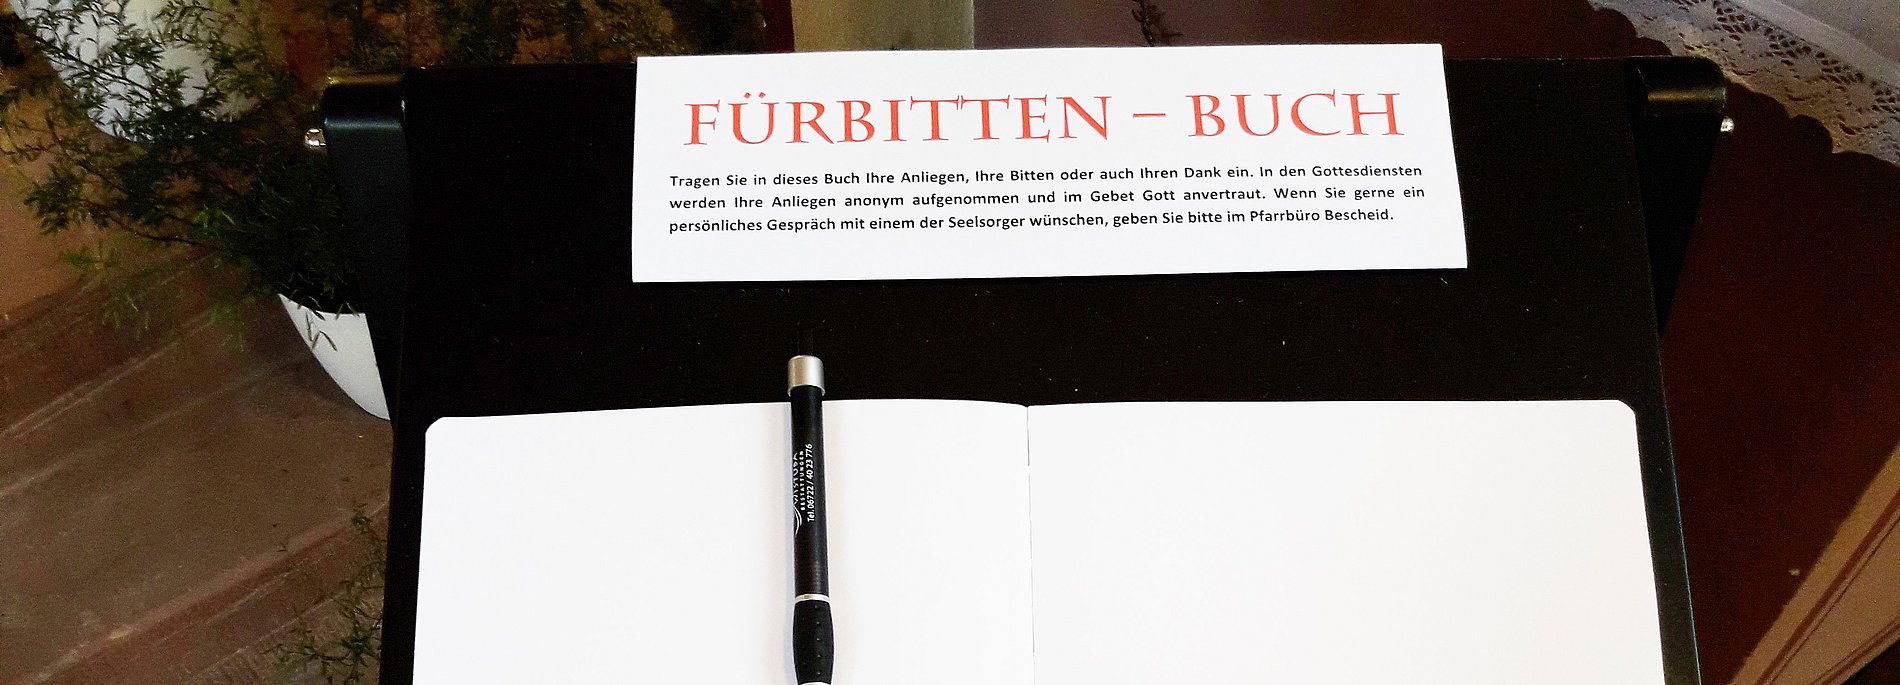 FÜRBITTEN – BUCH
Tragen Sie in dieses Buch Ihre Anliegen, Ihre Bitten oder auch Ihren Dank ein. In den Gottesdiensten
werden Ihre Anliegen anonym aufgenommen und im Gebet Gott anvertraut. Wenn Sie gerne ein
persönliches Gespräch mit einem der Seelsorger wünschen, geben Sie bitte im Pfarrbüro Bescheid.
BESTATTUNGEN
Tel. 06722 / 40 23 776